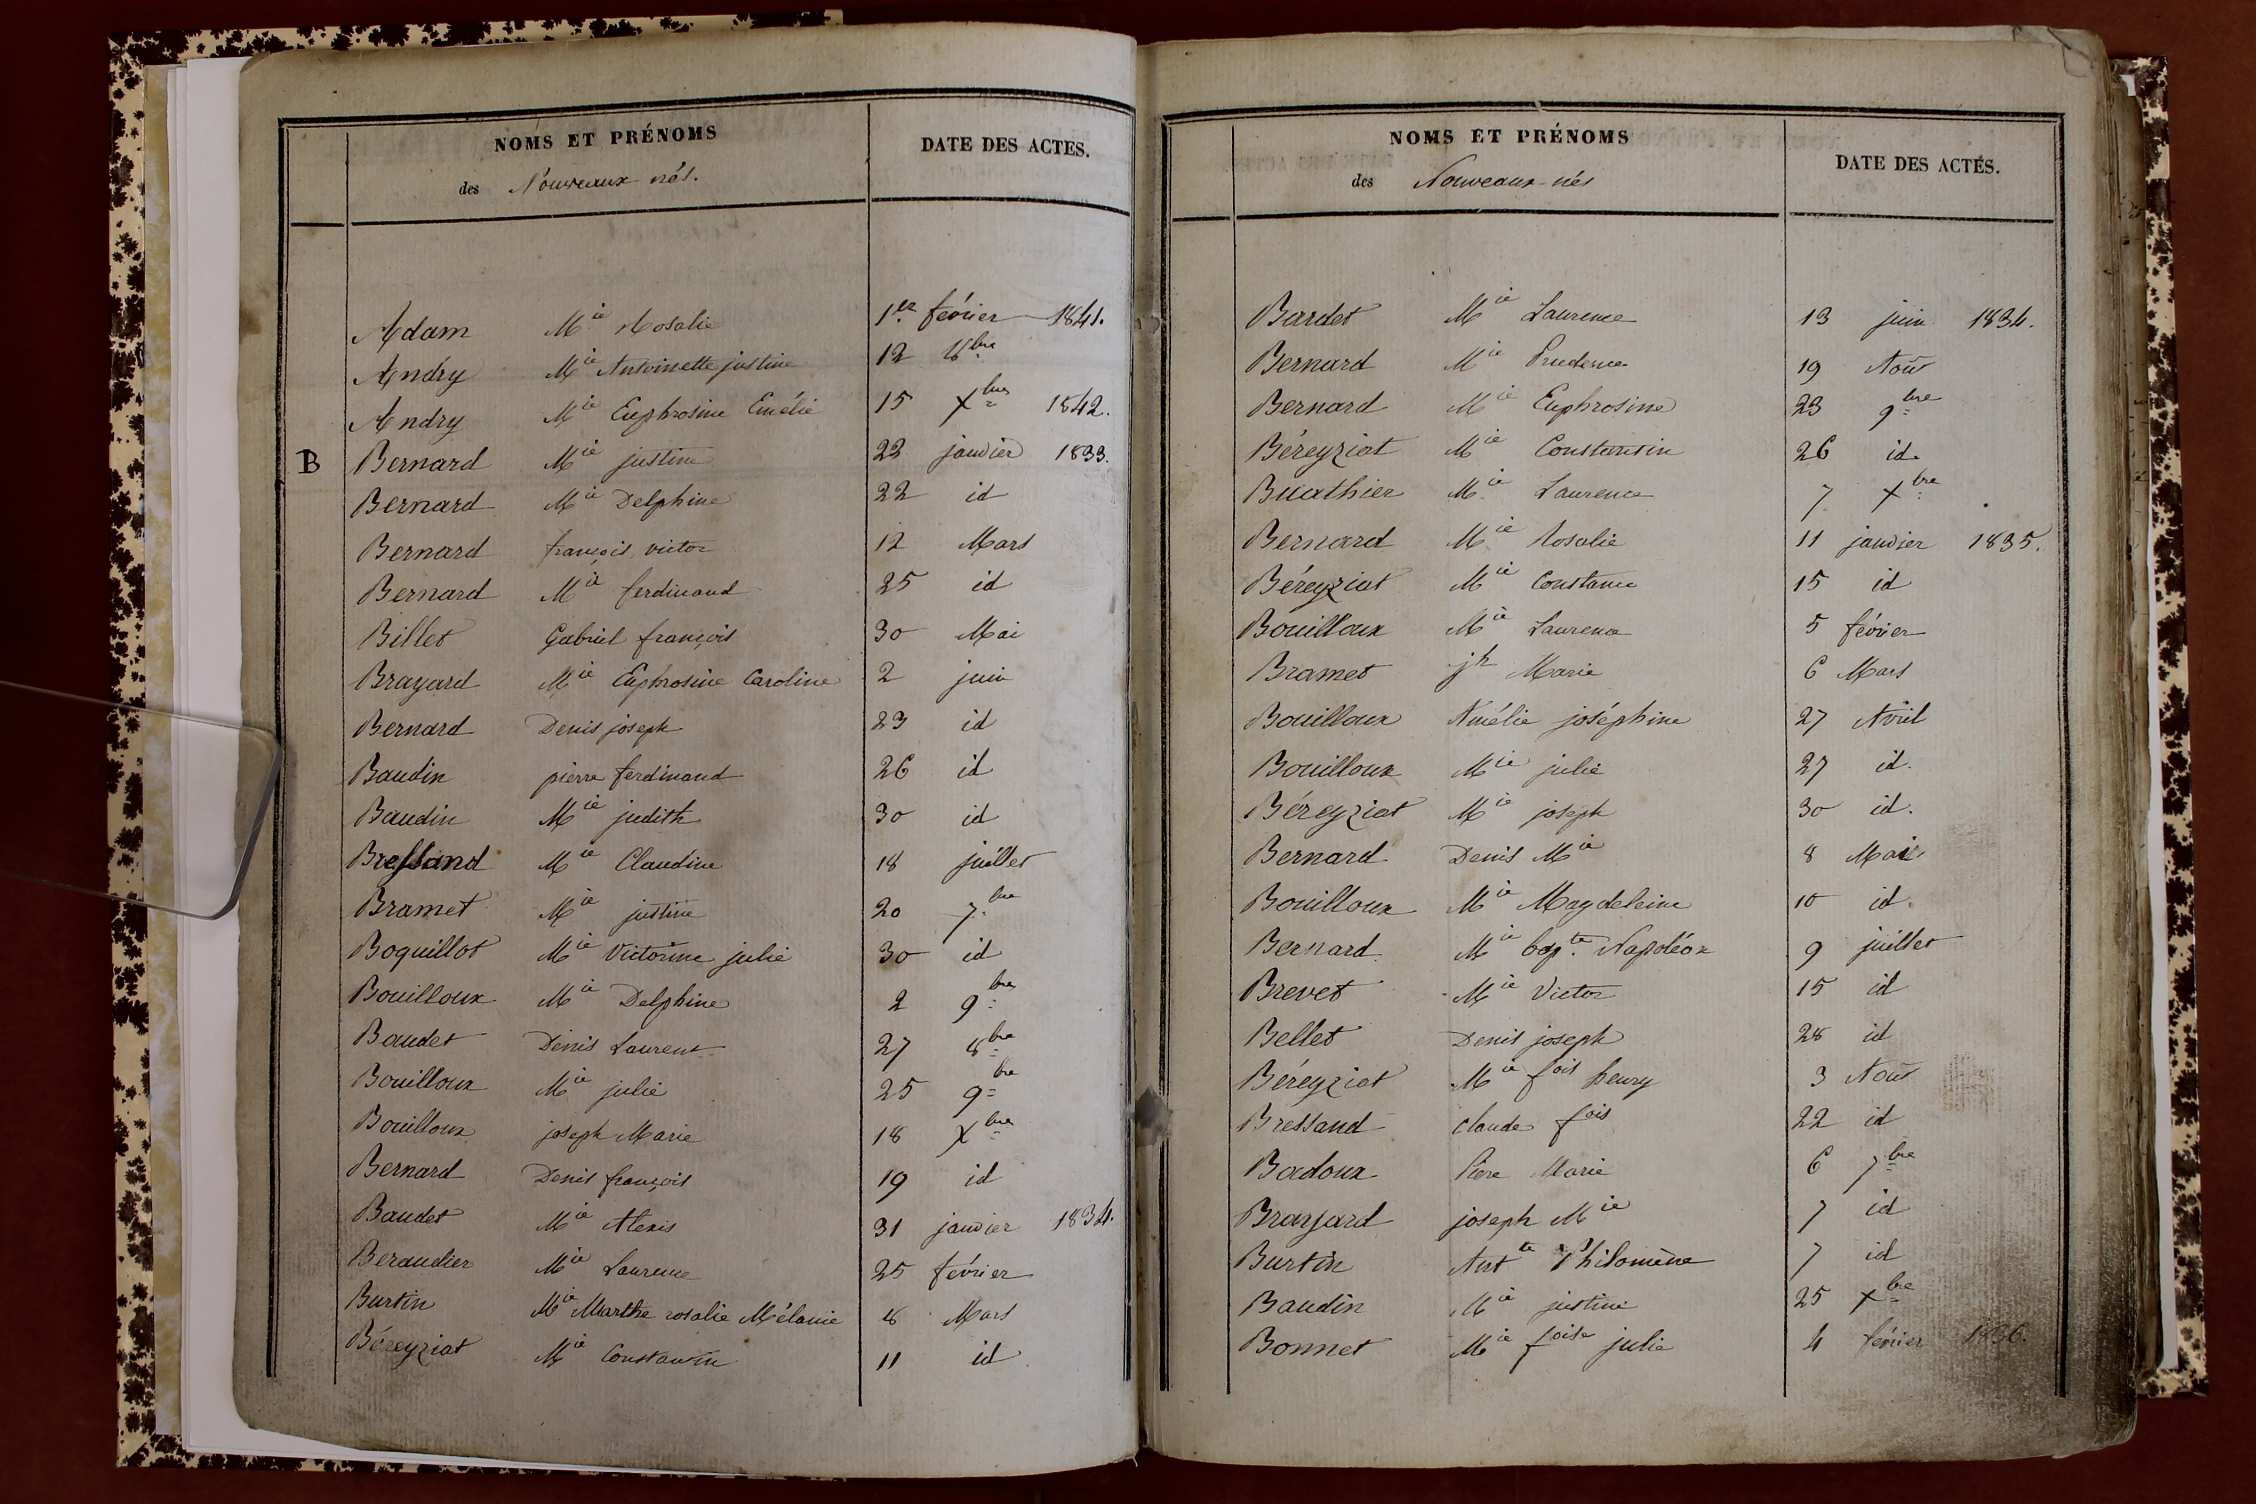 NOMS ET PRÉNOMS
des Nouveaux nés.
DATE DES ACTES.
Adam Mie Rosalie 1er février 1841.
Andry Mie Antoinette justine 12 8bre
Andry Mie Euphrosine Emélie 15 Xbre 1842.
B Bernard Mie justine 22 janvier 1833.
Bernard Mie Delphine 22 id
Bernard françois victor 12 Mars
Bernard Mie ferdinand 25 id
Billet Gabriel françois 30 Mai
Brayard Mie Euphrosine Caroline 2 juin
Bernard Denis joseph 23 id
Baudin pierre ferdinand 26 id
Baudin Mie judith 30 id
Bressand Mie Claudine 18 juillet
Bramet Mie justine 20 7bre
Boquillot Mie Victorine julie 30 id
Bouilloux Mie Delphine 2 9bre
Baudet Denis Laurent 27 8bre
Bouilloux Mie julie 25 9bre
Bouilloux joseph Marie 18 Xbre
Bernard Denis françois 19 id
Baudet Mie Alexis 31 janvier 1834.
Beraudier Mie Laurence 25 février
Burtin Mie Marthe rosalie Mélanie 8 Mars
Béreyziat Mie Constantin 11 id
NOMS ET PRÉNOMS
des Nouveaux-nés
DATE DES ACTES.
Bardet Mie Laurence 13 juin 1834.
Bernard Mie Prudence 19 Août
Bernard Mie Euphrosine 23 9bre
Béreyziat Mie Constantin 26 id.
Buathier Mie Laurence 7 Xbre
Bernard Mie Rosalie 11 janvier 1835.
Béreyziat Mie Constance 15 id
Bouilloux Mie Laurence 5 février
Bramet jh Marie 6 Mars
Bouilloux Amélie joséphine 27 Avril
Bouilloux Mie julie 27 id.
Béreyziat Mie joseph 30 id.
Bernard Denis Mie 8 Mai
Bouilloux Mie Magdeleine 10 id.
Bernard Mie bapte. Napoléon 9 juillet
Brevet Mie Victor 15 id
Bellet Denis joseph 28 id
Béreyziat Mie fois henry 3 Août
Bressand claude fois 22 id
Badoux Pierre Marie 6 7bre
Brayard joseph Mie 7 id
Burtin Antte Philomène 7 id
Baudin Mie justine 25 Xbre
Bonnet Mie foise julie 4 février 1836.